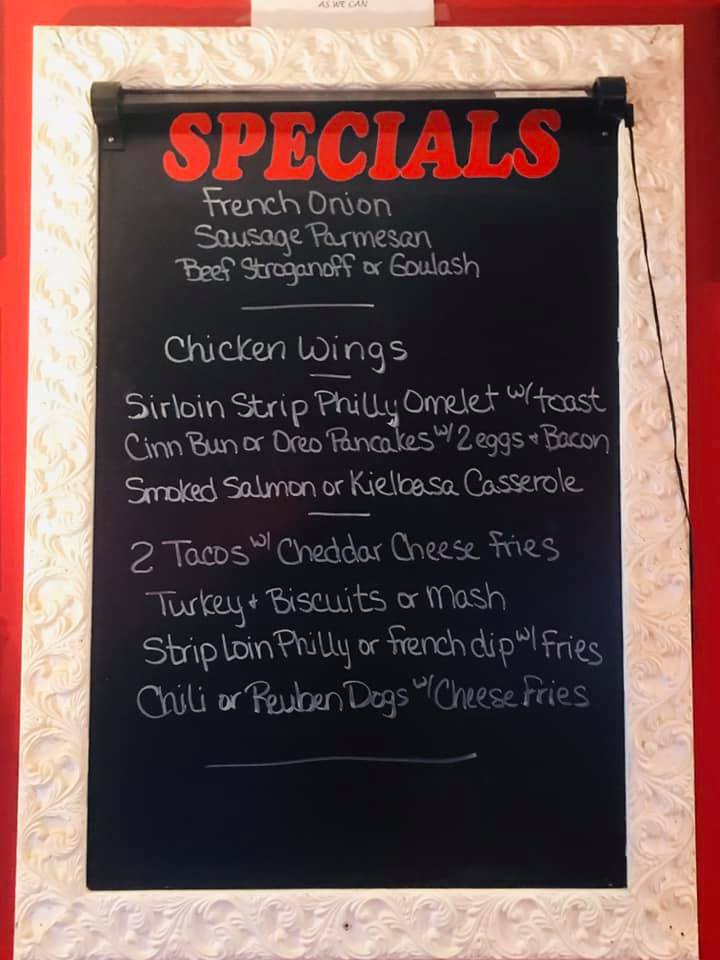 AS WE CAN
SPECIALS
French Onion
Sausage Parmesan
Beef Stroganoff or Goulash
Chicken Wings
Sirloin Strip Philly Omelet w/ toast
Cinn Bun or Oreo Pancakes w/ 2 eggs + Bacon
Smoked Salmon or Kielbasa Casserole
2 Tacos w/ Cheddar Cheese Fries
Turkey + Biscuits or Mash
Strip Loin Philly or french dip w/ Fries
Chili or Reuben Dogs w/ Cheese Fries